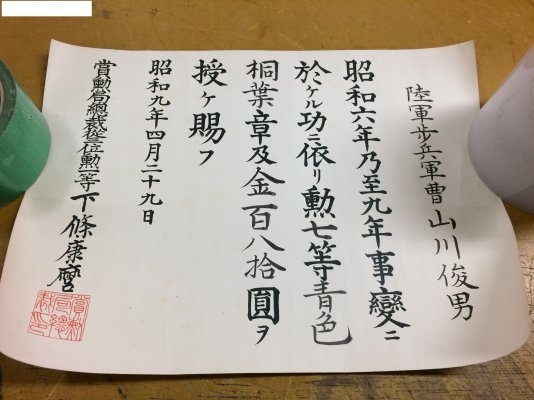 陸軍歩兵軍曹 山川俊男
昭和六年乃至九年事變ニ
於ケル功ニ依リ勲七等青色
桐葉章及金百八拾圓ヲ
授ケ賜フ
昭和九年四月二十九日
賞勲局總裁從三位勲一等下條康麿
賞勲局總裁之印